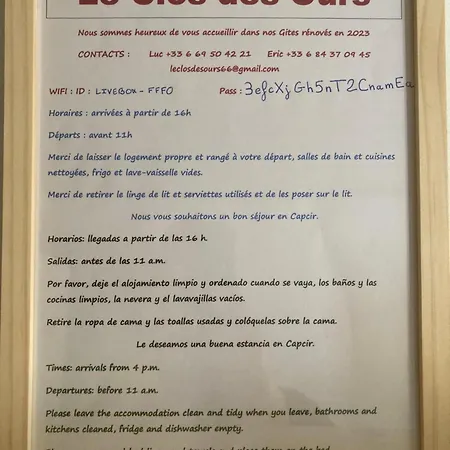 Le Clos des Ours
Nous sommes heureux de vous accueillir dans nos Gites rénovés en 2023
CONTACTS : Luc +33 6 69 50 42 21 Eric +33 6 84 37 09 45
leclosdesours66@gmail.com
WIFI : ID : LIVEBOX - FFF0 Pass : 3efcXjGh5nT2CnamEa
Horaires : arrivées à partir de 16h
Départs : avant 11h
Merci de laisser le logement propre et rangé à votre départ, salles de bain et cuisines
nettoyées, frigo et lave-vaisselle vides.
Merci de retirer le linge de lit et serviettes utilisés et de les poser sur le lit.
Nous vous souhaitons un bon séjour en Capcir.
Horarios: llegadas a partir de las 16 h.
Salidas: antes de las 11 a.m.
Por favor, deje el alojamiento limpio y ordenado cuando se vaya, los baños y las
cocinas limpios, la nevera y el lavavajillas vacíos.
Retire la ropa de cama y las toallas usadas y colóquelas sobre la cama.
Le deseamos una buena estancia en Capcir.
Times: arrivals from 4 p.m.
Departures: before 11 a.m.
Please leave the accommodation clean and tidy when you leave, bathrooms and
kitchens cleaned, fridge and dishwasher empty.